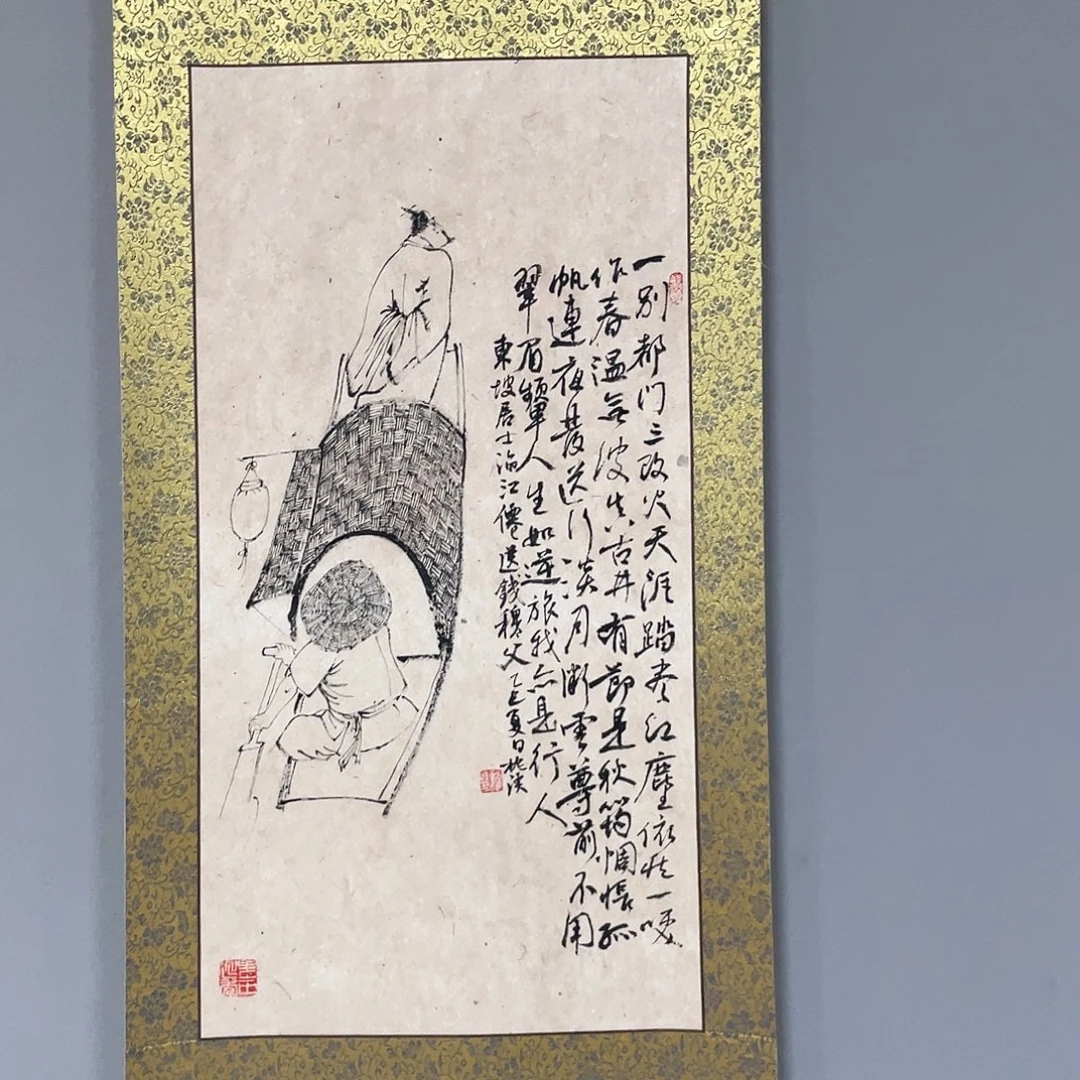 一别都门三改火天涯踏尽红塵依然一咲
作春温無波真古井有節是秋筠惆悵孤
帆連夜發送行淡月微雲尊前不用
翠眉顰人生如逆旅我亦是行人
東坡居士臨江僊送錢穆父乙巳夏日